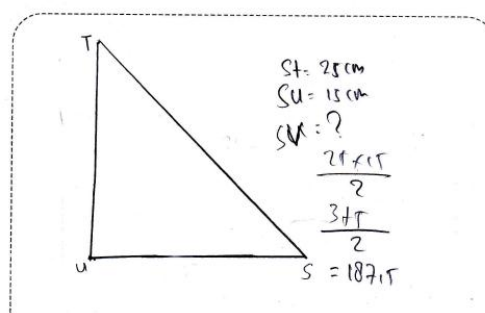 T
St = 25 cm
SU = 15 cm
SU = ?
25 x 15
2
375
2
U
S
= 187,5